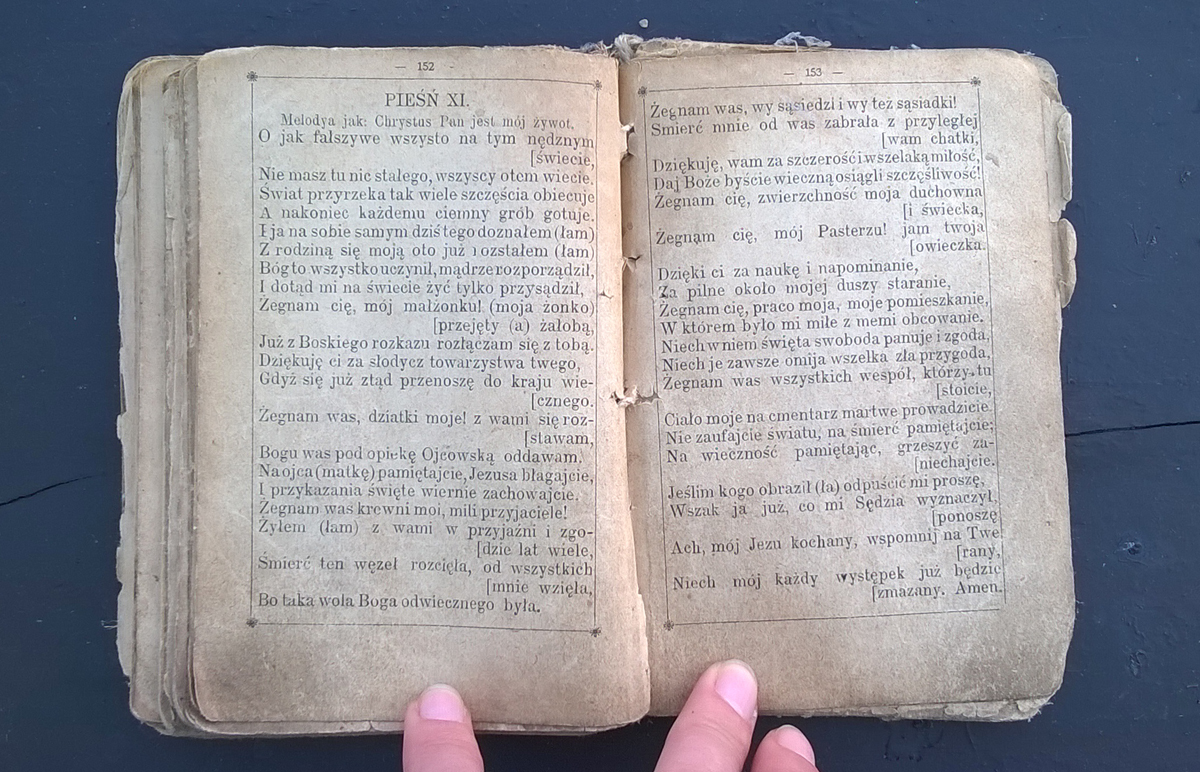 — 152 -
PIEŚŃ XI.
Melodya jak: Chrystus Pan jest mój żywot.
O jak falszywe wszysto na tym nędznym
[świecie,
Nie masz tu nic stałego, wszyscy o tem wiecie.
Świat przyrzeka tak wiele szczęścia obiecuje
A nakoniec każdemu ciemny grób gotuje.
I ja na sobie samym dziś tego doznałem (łam)
Z rodziną się moją oto już rozstałem (łam)
Bóg to wszystko uczynił, mądrze rozporządził,
I dotąd mi na świecie żyć tylko przysądził,
Żegnam cię, mój małżonku! (moja żonko)
[przejęty (a) żałobą,
Już z Boskiego rozkazu rozłączam się z tobą.
Dziękuję ci za słodycz towarzystwa twego,
Gdyż się już ztąd przenoszę do kraju wie-
[cznego.
Żegnam was, dziatki moje! z wami się roz-
[stawam,
Bogu was pod opiekę Ojcowską oddawam.
Na ojca (matkę) pamiętajcie, Jezusa błagajcie,
I przykazania święte wiernie zachowajcie.
Żegnam was krewni moi, mili przyjaciele!
Żyłem (łam) z wami w przyjaźni i zgo-
[dzie lat wiele,
Śmierć ten węzeł rozcięła, od wszystkich
[mnie wzięła,
Bo taka wola Boga odwiecznego była.
— 153 —
Żegnam was, wy sąsiedzi i wy też sąsiadki!
Śmierć mnie od was zabrała z przyległej
[wam chatki,
Dziękuję, wam za szczerość i wszelaką miłość,
Daj Boże byście wieczną osiągli szczęśliwość!
Żegnam cię, zwierzchność moja duchowna
[i świecka,
Żegnam cię, mój Pasterzu! jam twoja
[owieczka.
Dzięki ci za naukę i napominanie,
Za pilne około mojej duszy staranie,
Żegnam cię, praco moja, moje pomieszkanie,
W którem było mi miłe z memi obcowanie.
Niech w niem święta swoboda panuje i zgoda,
Niech je zawsze omija wszelka zła przygoda,
Żegnam was wszystkich wespół, którzy tu
[stoicie,
Ciało moje na cmentarz martwe prowadzicie.
Nie zaufajcie światu, na śmierć pamiętajcie;
Na wieczność pamiętając, grzeszyć za-
[niechajcie.
Jeślim kogo obraził (ła) odpuścić mi proszę,
Wszak ja już, co mi Sędzia wyznaczył,
[ponoszę
Ach, mój Jezu kochany, wspomnij na Twe
[rany,
Niech mój każdy występek już będzie
[zmazany. Amen.